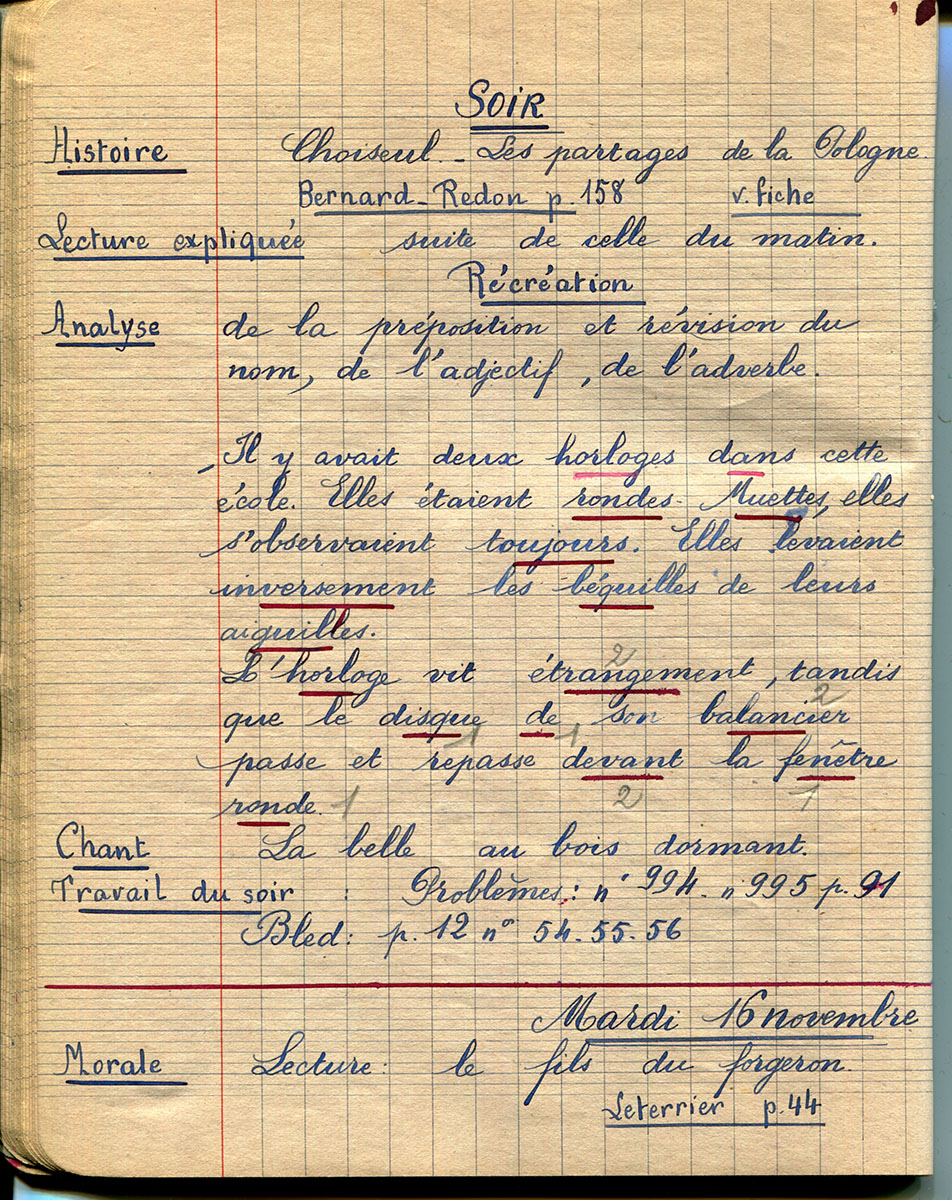 SOIR
Histoire Choiseul _ Les partages de la Pologne.
Bernard_Redon p.158 v. fiche
Lecture expliquée suite de celle du matin.
Récréation
Analyse de la préposition et révision du
nom, de l'adjectif, de l'adverbe.
_ Il y avait deux horloges dans cette
école. Elles étaient rondes. Muettes, elles
s'observaient toujours. Elles levaient
inversement les béquilles de leurs
aiguilles.
2
L'horloge vit étrangement, tandis
2
que le disque de son balancier
1 1
passe et repasse devant la fenêtre
ronde. 1 2 1
Chant La belle au bois dormant.
Travail du soir : Problèmes : n° 994 - n° 995 p. 91
Bled : p. 12 n° 54.55.56
Mardi 16 novembre
Morale Lecture : le fils du forgeron.
Leterrier p.44